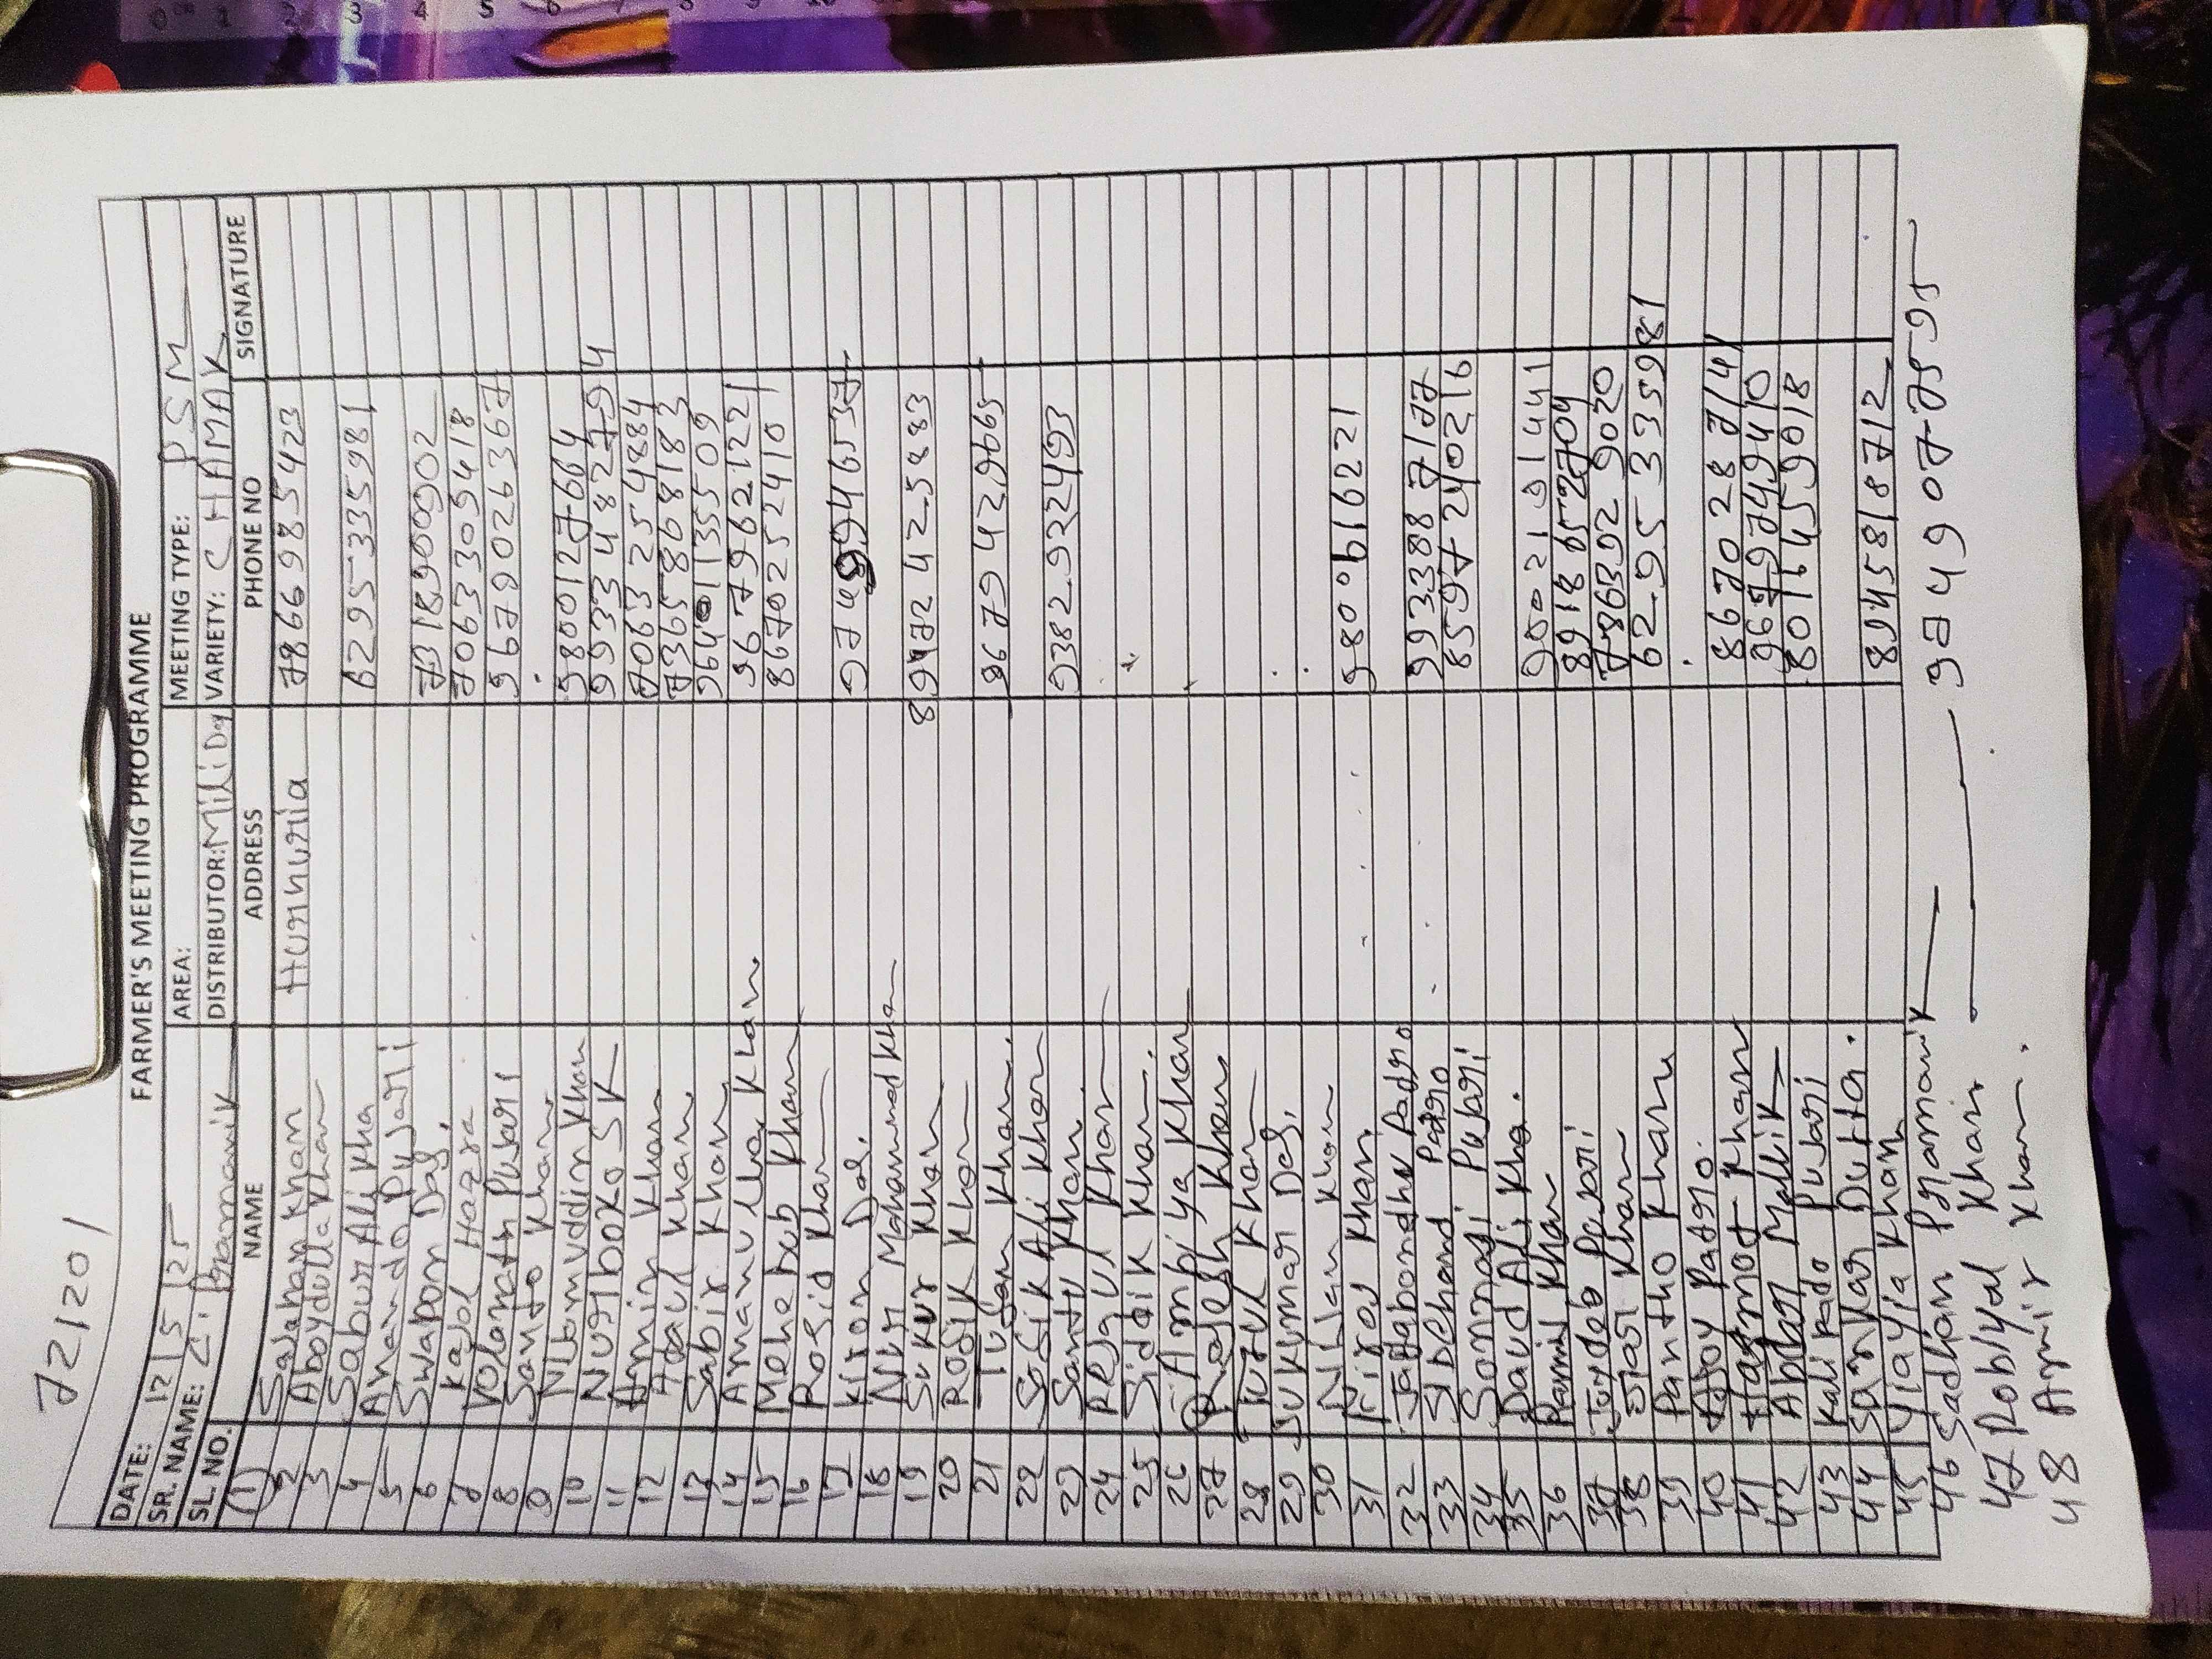 721201
FARMER'S MEETING PROGRAMME
DATE: 12/5/25 AREA: MEETING TYPE: PSM
SR. NAME: Z. Pramanik DISTRIBUTOR: Mili Dq VARIETY: CHAMAK
SL. NO. NAME ADDRESS PHONE NO SIGNATURE
1 Salahan Khan Hurhuria 7866985423
2 Aboydulla Khan
3 Sabur Ali Kha 6295335981
4 Anando Pujari
5 Swapon Das. 7318900902
6 Kajol Hazra 7063305418
7 Volanath Pujari 9678026367
8 Santo Khan.
9 Nibomuddin Khan 9800127664
10 Nurboko SK 9933482794
11 Amin Khan 7063254884
12 Azaul Khan. 7365868183
13 Sabir Khan 9640113509
14 Amanulla Khan. 9679621221
15 Mehebub Khan 8670252410
16 Rosid Khan
17 Kiron Das. 9748994653
18 Nur Mahammed Khan
19 Sukur Khan 8972425883
20 Rosik Khan
21 Tufan Khan. 9679429665
22 Sosik Ali Khan
23 Santu Khan. 9382922493
24 Rejaul Khan
25 Siddik Khan.
26 Ambiya Khan
27 Rajesh Khan
28 Tuzul Khan
29 Sukumar Das.
30 Nilan Khan
31 Niroj Khan. 9800616221
32 Jagabondhu Padro 9933887177
33 Sibchand Patro 8597240216
34 Sonnasi Pujari
35 Daud Ali Kha. 9002191441
36 Ramil Khan 8918652704
37 Joydeb Pujari 7863929020
38 Jiari Khan 6295335981
39 Pantho Khan
40 Ajoy Patro. 8670287141
41 Hasmot Khan 9679749410
42 Abdar Mallik 8016459018
43 Kali Pado Pujari
44 Sankar Dutta. 8945818712
45 Yiayia Khan
46 Sadhan Pramanik 9749077595
47 Robiyal Khan
48 Amir Khan.